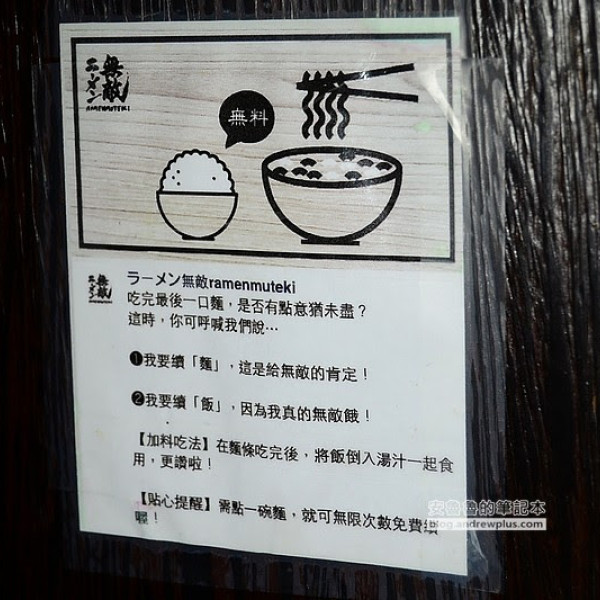 無敵
ラーメン
RAMENMUTEKI
無料
無敵
ラーメン
ラーメン無敵ramenmuteki
吃完最後一口麵，是否有點意猶未盡？
這時，你可呼喊我們說…
❶我要續「麵」，這是給無敵的肯定！
❷我要續「飯」，因為我真的無敵餓！
【加料吃法】在麵條吃完後，將飯倒入湯汁一起食
用，更讚啦！
【貼心提醒】需點一碗麵，就可無限次數免費續
喔！
安魯魯的筆記本
blog.andrewplus.com